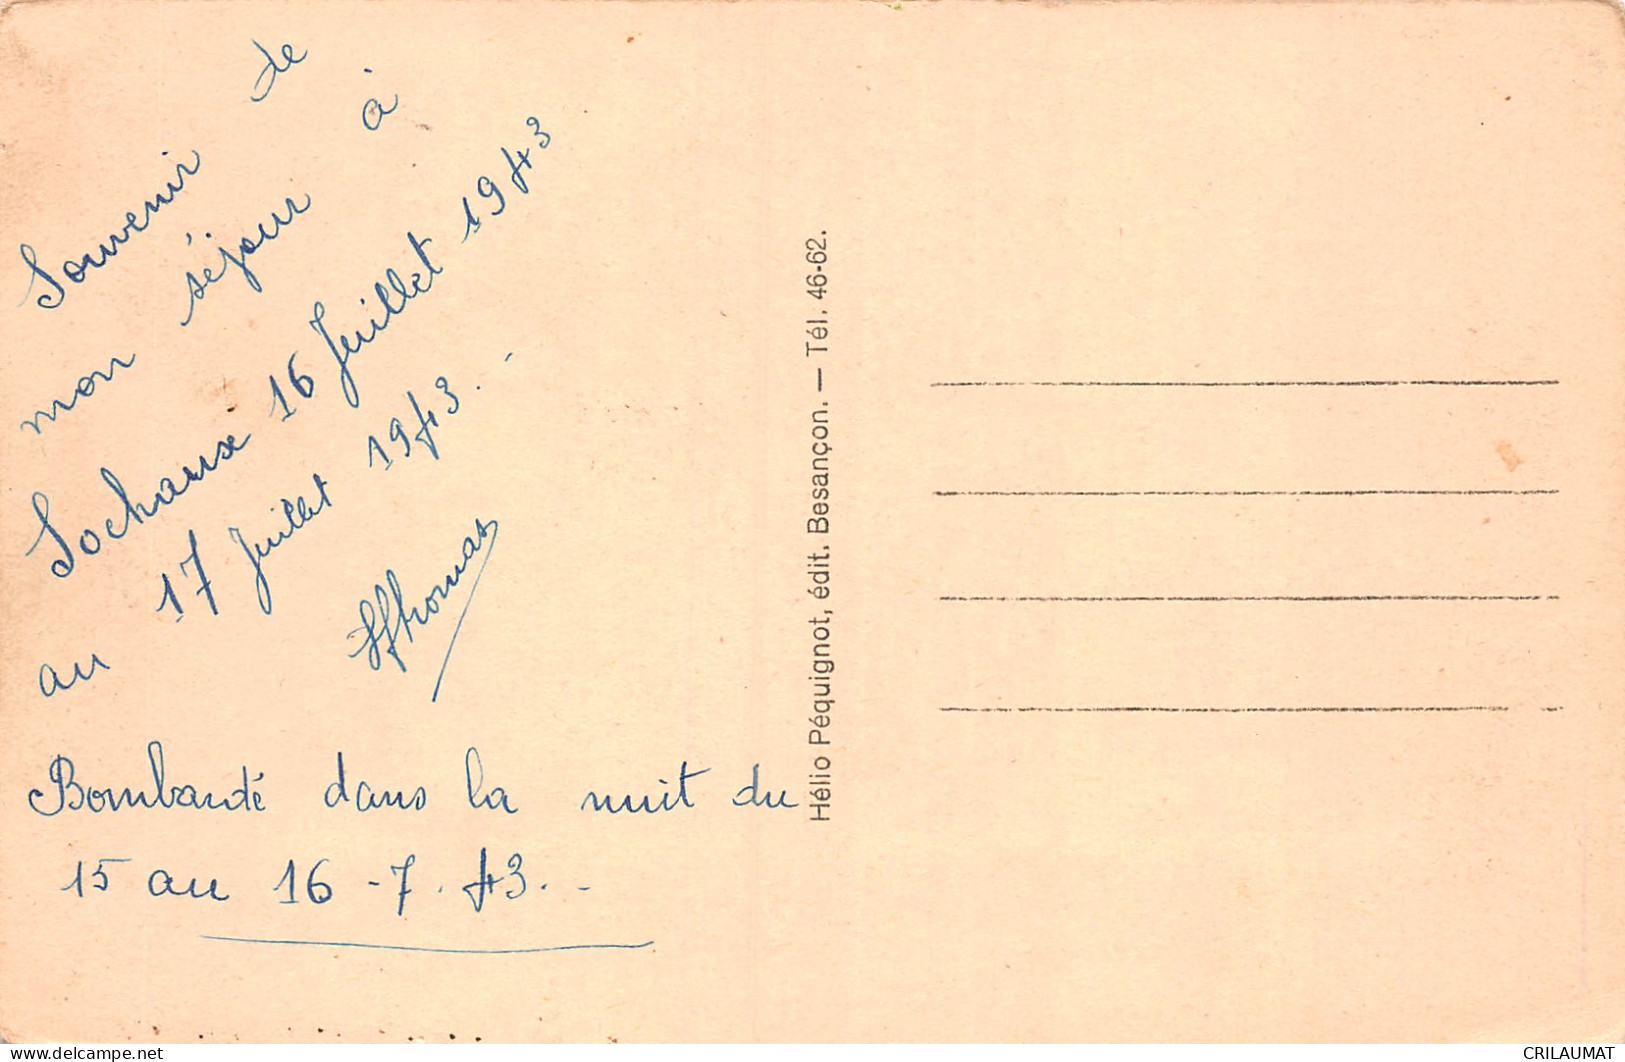 Souvenir de
mon séjour à
Sochaux 16 Juillet 1943
au 17 Juillet 1943. -
Bombardé dans la nuit du
15 au 16 - 7. 43. -
Hélio Péquignot, édit. Besançon. — Tél. 46-62.
delcampe.net
CRILAUMAT